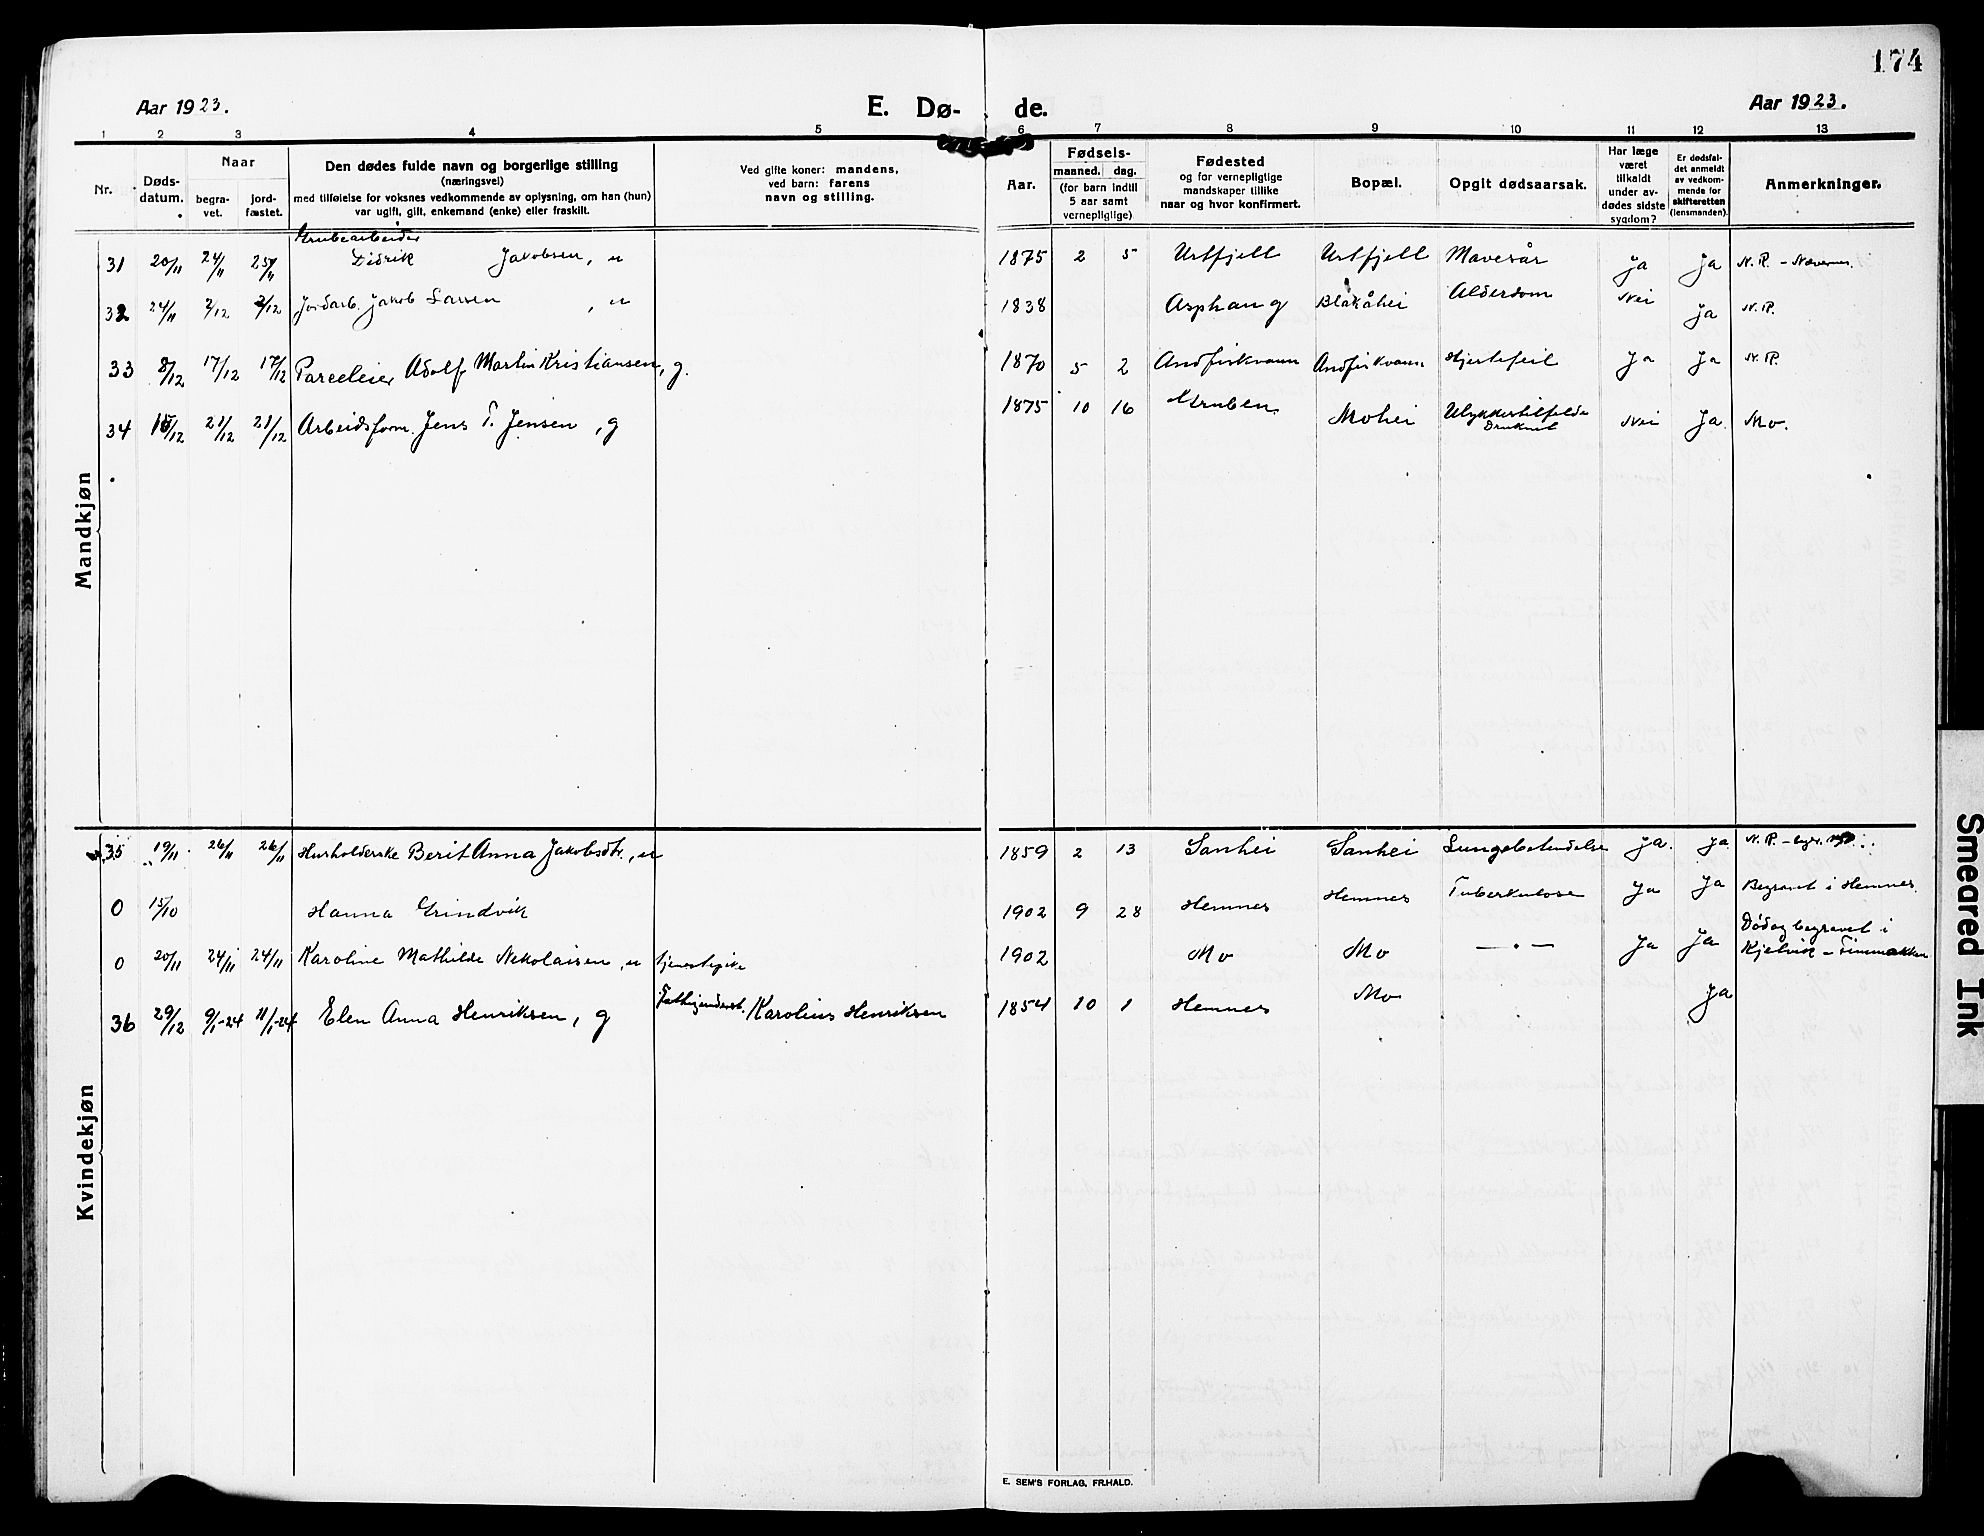 174
Aar 1923. E. Dø- de. Aar 1923.
1 2 3 4 5 6 7 8 9 10 11 12 13
Nr.
Døds-
datum.
Naar
begra-
vet.
jord-
fæstet.
Den dødes fulde navn og borgerlige stilling
(næringsvei)
med tilføielse for voksnes vedkommende av oplysning, om han (hun)
var ugift, gift, enkemand (enke) eller fraskilt.
Ved gifte koner: mandens,
ved barn: farens
navn og stilling.
Aar.
Fødsels-
maaned. dag.
(for barn indtil
5 aar samt
vernepligtige)
Fødested
og for vernepligtige
mandskaper tillike
naar og hvor konfirmert.
Bopæl.
Opgit dødsaarsak.
Har læge
været
tilkaldt
under av-
dødes sidste
sygdom?
Er dødsfal-
det anmeldt
av vedkom-
mende for
skifteretten
(lensmanden).
Anmerkninger.
Mandkjøn
Grubearbeider
31 20/11 24/11 25/11 Didrik Jakobsen, u 1875 2 5 Urtfjell Urtfjell Mavesår Ja Ja N.R. - Nævernes.
32 24/11 2/12 2/12 Jordarb. Jakob Larsen, u 1838 Asphaug Blakåhei Alderdom Nei Ja N.R.
33 8/12 17/12 17/12 Parceleier Adolf Martin Kristiansen, g. 1870 5 2 Andfiskvann Andfiskvann Hjertefeil Ja Ja N.R.
34 15/12 21/12 21/12 Arbeidsform. Jens T. Jensen, g 1875 10 16 Gruben Mohei Ulykkestilfelde Druknet Nei Ja. Mo.
Kvindekjøn
35 19/11 26/11 26/11 Husholderske Berit Anna Jakobsdtr., u 1859 2 13 Sanhei Sanhei Lungebetendelse Ja. Ja N.R. - begr.
0 15/10 Hanna Grindvik 1902 9 28 Hemnes Hemnes Tuberkulose Ja Ja Begravet i Hemnes.
0 20/11 24/11 24/11 Karoline Mathilde Nikolaisen, u tjenestepike 1902 Mo Mo — " — Ja Ja Død og begravet i
Kjelvik - Finmarken
36 29/12 9/1-24 11/1-24 Elen Anna Henriksen, g Fattigunderst. Karolius Henriksen 1854 10 1 Hemnes Mo Ja
E. SEM'S FORLAG, FR.HALD.
Smeared Ink